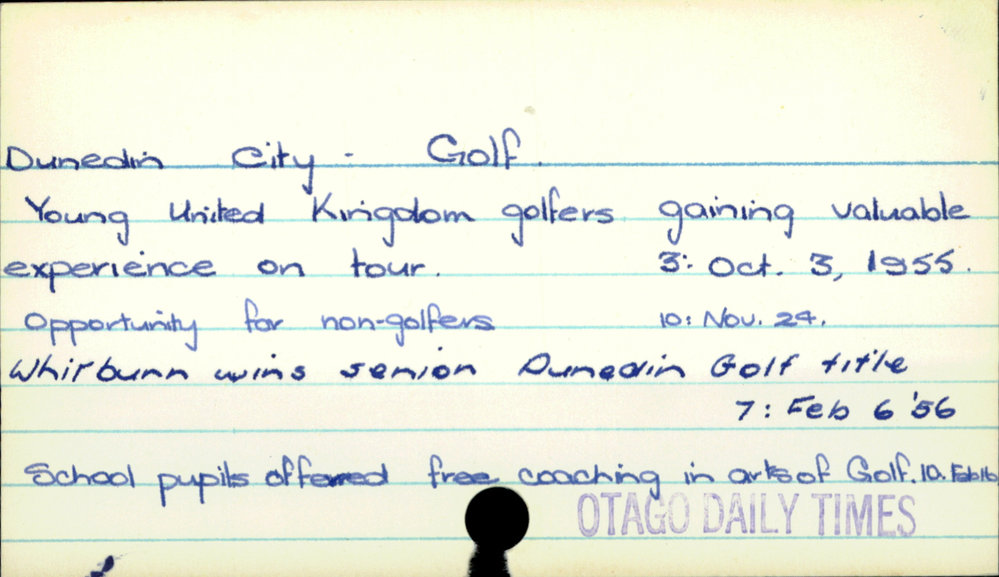 Dunedin City - Golf.
Young United Kingdom golfers gaining valuable
experience on tour. 3: Oct. 3, 1955.
Opportunity for non-golfers 10: Nov. 24.
Whitburn wins senior Dunedin Golf title
7: Feb 6 '56
School pupils offered free coaching in arts of Golf. 10. Feb 16
OTAGO DAILY TIMES